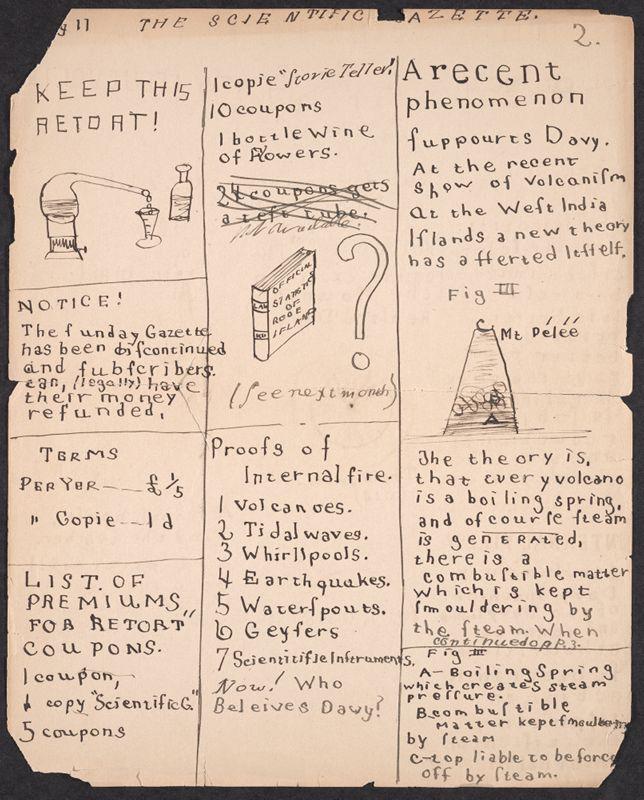 g 11 THE SCIENTIFIC GAZETTE.
2.
KEEP THIS
RETORT!
NOTICE!
The ſunday Gazette
has been diſcontinued
and ſubſcribers.
can, (legally) have
their money
refunded.
TERMS
PER YER —— £ 1/5
" Copie -- 1 d
LIST OF
PREMIUMS,,
FOR RETORT
COUPONS.
1 coupon,
1 copy "Scientific G."
5 coupons
1 copie "Storie Teller!
10 coupons
1 bottle Wine
of flowers.
24 coupons gets
a teſt tube.
not available.
OFFICIAL
STATISTICS
OF
RODE
IſLAND
LAW
?
(See next month)
Proofs of
Internal fire.
1 Volcanoes.
2 Tidal waves.
3 Whirlſpools.
4 Earthquakes.
5 Waterſpouts.
6 Geyſers
7 Scientitifſc Inſtruments.
Now! Who
Beleives Davy?
A recent
phenomenon
ſuppourts Davy.
At the recent
ſhow of Volcaniſm
at the Weſt India
Iſlands a new theory
has aſſerted itſelf.
Fig III
Mt Péléé
B
A
The theory is,
that every volcano
is a boiling spring,
and of courſe ſteam
is generated,
there is a
combuſtible matter
which is kept
ſmouldering by
the ſteam. When
Continued on P. 3.
Fig III
A- Boiling Spring
which creates steam
preſſure.
B combuſtible
matter kept ſmouldering
by ſteam
C-top liable to be force
off by steam.